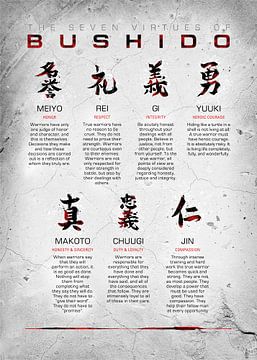 THE SEVEN VIRTUES OF
BUSHIDO
名誉 礼 義 勇
MEIYO REI GI YUUKI
HONOR RESPECT INTEGRITY HEROIC COURAGE
Warriors have only
one judge of honor
and character, and
this is themselves.
Decisions they make
and how these
decisions are carried
out is a reflection of
whom they truly are.
True warriors have
no reason to be
cruel. They do not
need to prove their
strength. Warriors
are courteous even
to their enemies.
Warriors are not
only respected for
their strength in
battle, but also by
their dealings with
others.
Be acutely honest
throughout your
dealings with all
people. Believe in
justice, not from
other people, but
from yourself. To the
true warrior, all
points of view are
deeply considered
regarding honesty,
justice and integrity.
Hiding like a turtle in a
shell is not living at all.
A true warrior must
have heroic courage.
It is absolutely risky. It
is living life completely,
fully, and wonderfully.
真 忠義 仁
MAKOTO CHUUGI JIN
HONESTY & SINCERITY DUTY & LOYALTY COMPASSION
When warriors say that
they will perform
an action, it
is as good as done.
Nothing will stop
them from
completing what
they say they will do.
They do not have to
"give their word".
They do not have to
"promise".
Warriors are
responsible for
everything that they
have done and
everything that they
have said, and all of
the consequences
that follow. They are
immensely loyal to all
of those in their care.
Through intense
training and hard
work the true warrior
becomes quick and
strong. They are not
as most people. They
develop a power that
must be used for
good. They have
compassion. They
help their fellow men
at every opportunity.